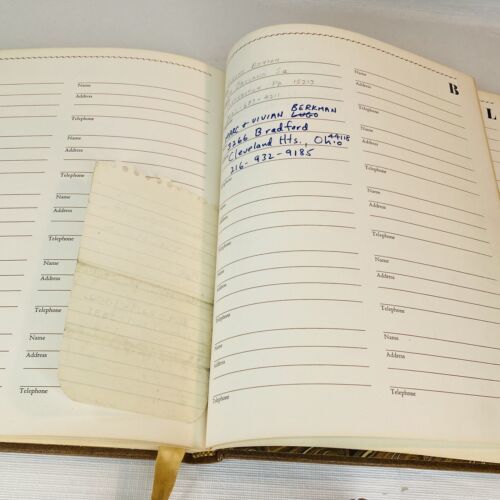 Name
Address
Telephone
Name
Address
Telephone
Name
Address
Telephone
Name
Address
Telephone
Name
Address
Telephone
B
L
Pa 15217
& VIVIAN BERKMAN
LUGO
3266 Bradford
Cleveland Hts., Ohio 44118
216-932-9185
Name
Address
Telephone
Name
Address
Telephone
Name
Address
Telephone
Name
Address
Telephone
Name
Address
Telephone